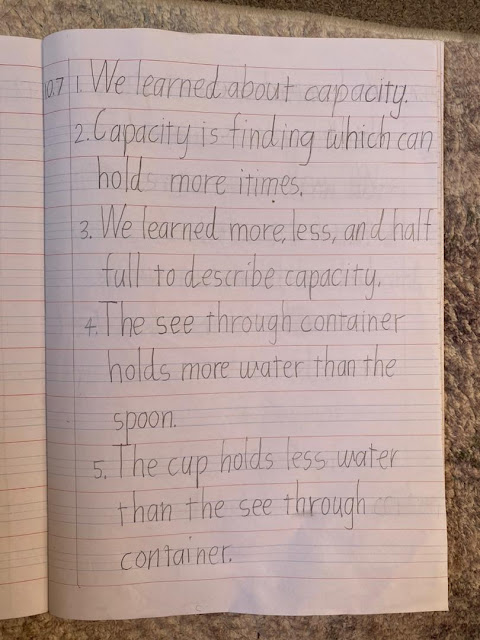 10.7 1. We learned about capacity.
2. Capacity is finding which can
hold more itimes.
3. We learned more, less, and half
full to describe capacity.
4. The see through container
holds more water than the
spoon.
5. The cup holds less water
than the see through
container.